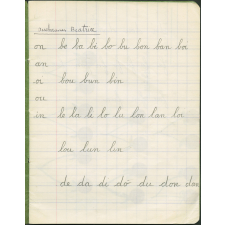 Beatrice
on be ba bi bo bu bon ban boi
an
oi bou bun bin
ou
in le la li lo lu lon lan loi
lou lun lin
de da di do du don dan